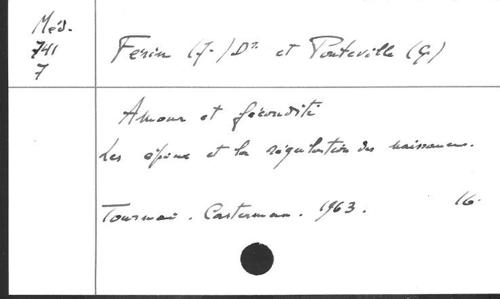 Méd.
741
7
Ferin (J-) Dr et Ponteville (G)
Amour et fécondité
Les époux et la régulation des naissances.
Tournai. Casterman. 1963. 16.